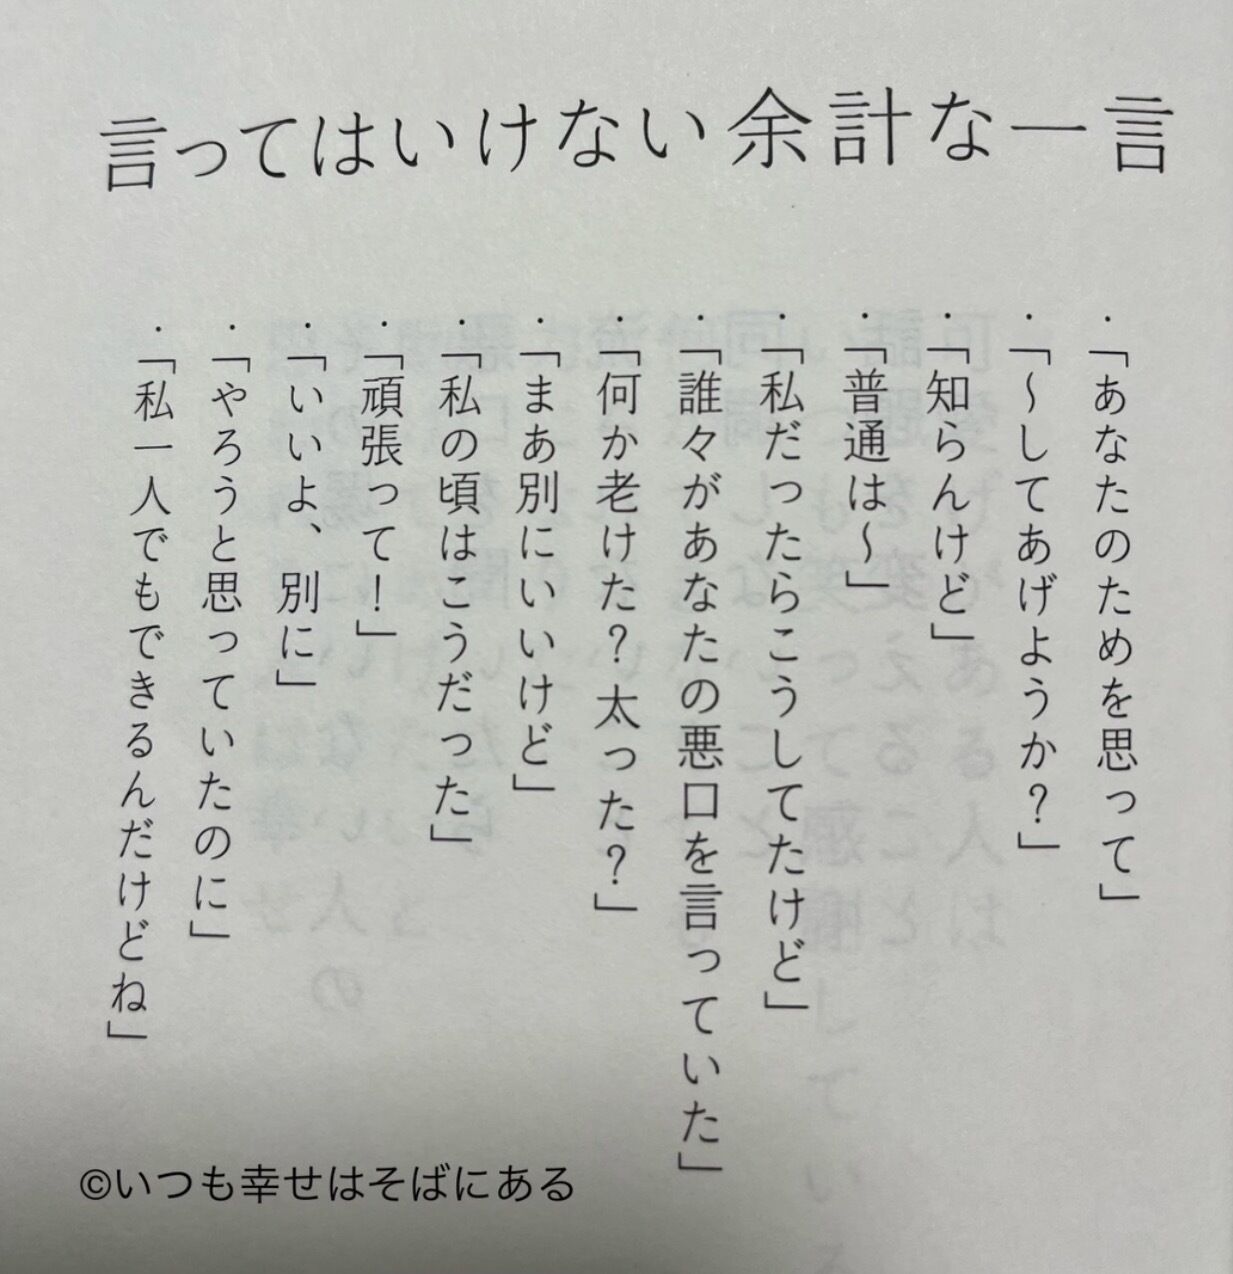 言ってはいけない余計な一言
・「あなたのためを思って」
・「〜してあげようか？」
・「知らんけど」
・「普通は〜」
・「私だったらこうしてたけど」
・「誰々があなたの悪口を言っていた」
・「何か老けた？太った？」
・「まあ別にいいけど」
・「私の頃はこうだった」
・「頑張って！」
・「いいよ、別に」
・「やろうと思っていたのに」
・「私一人でもできるんだけどね」
©いつも幸せはそばにある